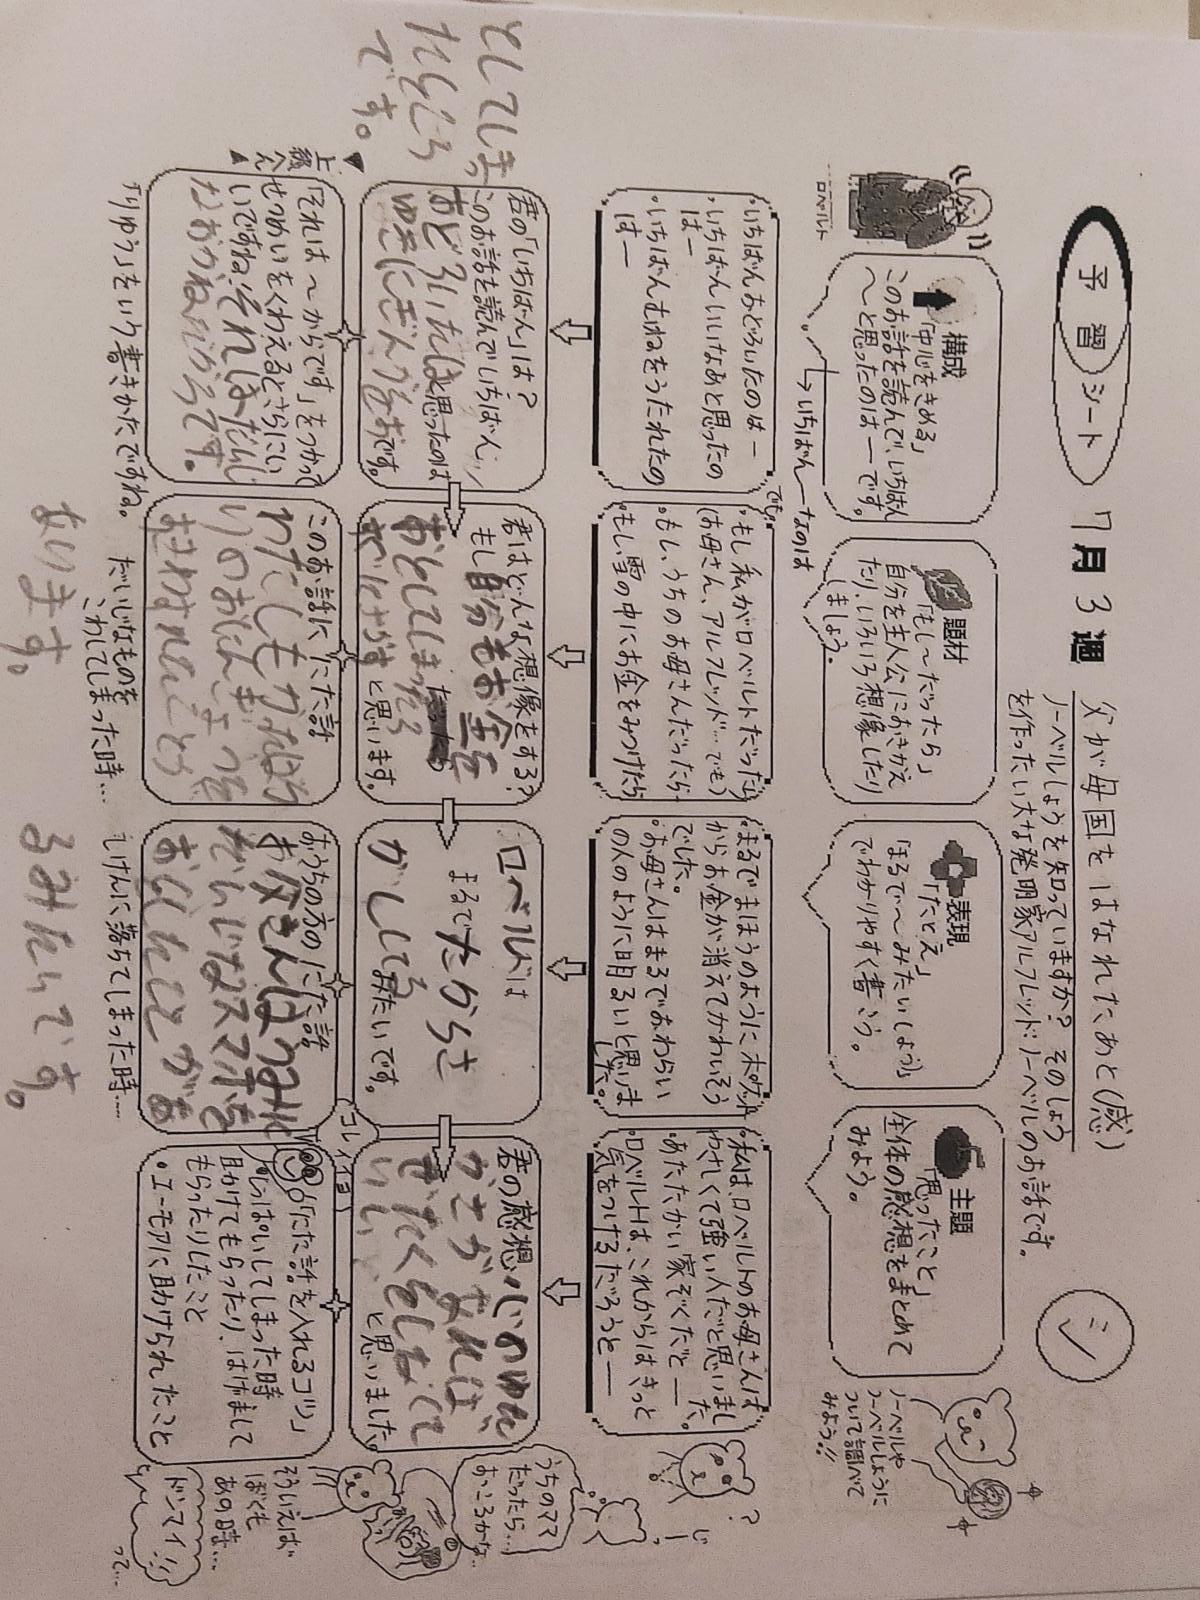 予習シート
7月3週
父が母国をはなれたあと(感)
ノーベルしょうを知っていますか？そのしょう
を作ったい大な発明家アルフレッド・ノーベルのお話です。
シ
ロベルト
構成
「中心をきめる」
このお話を読んで、いちばん
〜と思ったのは―です。
→いちばん―なのは
題材
「もし〜だったら」
自分を主人公におきかえ
たり、いろいろ想像したり
しましょう。
表現
「たとえ」
「まるで〜みたい(しょう)」
でわかりやすく書こう。
主題
「思ったこと」
全体の感想をまとめて
みよう。
ノーベルや
ノーベルしょうに
ついて調べて
みよう!!
・いちばんおどろいたのは―
・いちばんいいなあと思ったの
は―
・いちばんむねをうたれたの
は―
でも
・もし私がロベルトだったら
(お母さん、アルフレッド…でも)
・もし、うちのお母さんだったら
・もし雪の中にお金をみつけたら
・まるでまほうのようにポケット
からお金が消えてかわいそう
でした。
・お母さんはまるでおわらい
の人のように明るいと思いま
した。
・私は、ロベルトのお母さんは
やさしくて強い人だと思いました。
・あたたかい家ぞくだと―
・ロベルトは、これからはきっと
気をつけるだろうと―
君の「いちばん」は？
このお話を読んでいちばん
おどろいたなと思ったのは
ゆきにぎんかをお
です。
としてしまっ
たところ
です。
君はどんな想像をする？
もし自分もお金を
おとしてしまったら
と思います。
ロベルトは
まるでたからさ
がししてる
みたいです。
君の感想
心のゆた
かさがあれば
ぜたくをしなくて
いい
と思いました。
うちのママ
だったら…
おっころかな…
▼上級へん▲
「それは〜からです」をつかって
せつめいをくわえるとさらにい
いですね。それはだいじ
なおかねだからです。
「りゆう」をいう書きかたですね。
このお話ににた話
わたしもかぱら
りのおにんぎょうを
あります。
だいじなものを
こわしてしまった時…
おうちの方のにた話
お父さんはうみに
だいじなスマホを
おとしたことがあ
るみたいです。
しけんに落ちてしまった時…
コレイヨ
「にた話を入れるコツ」
・しっぱいしてしまった時
助けてもらったり、はげまして
もらったりしたこと
・ユーモアに助けられたこと
そういえば
ぼくも
あの時…
ドンマイ!!
って…